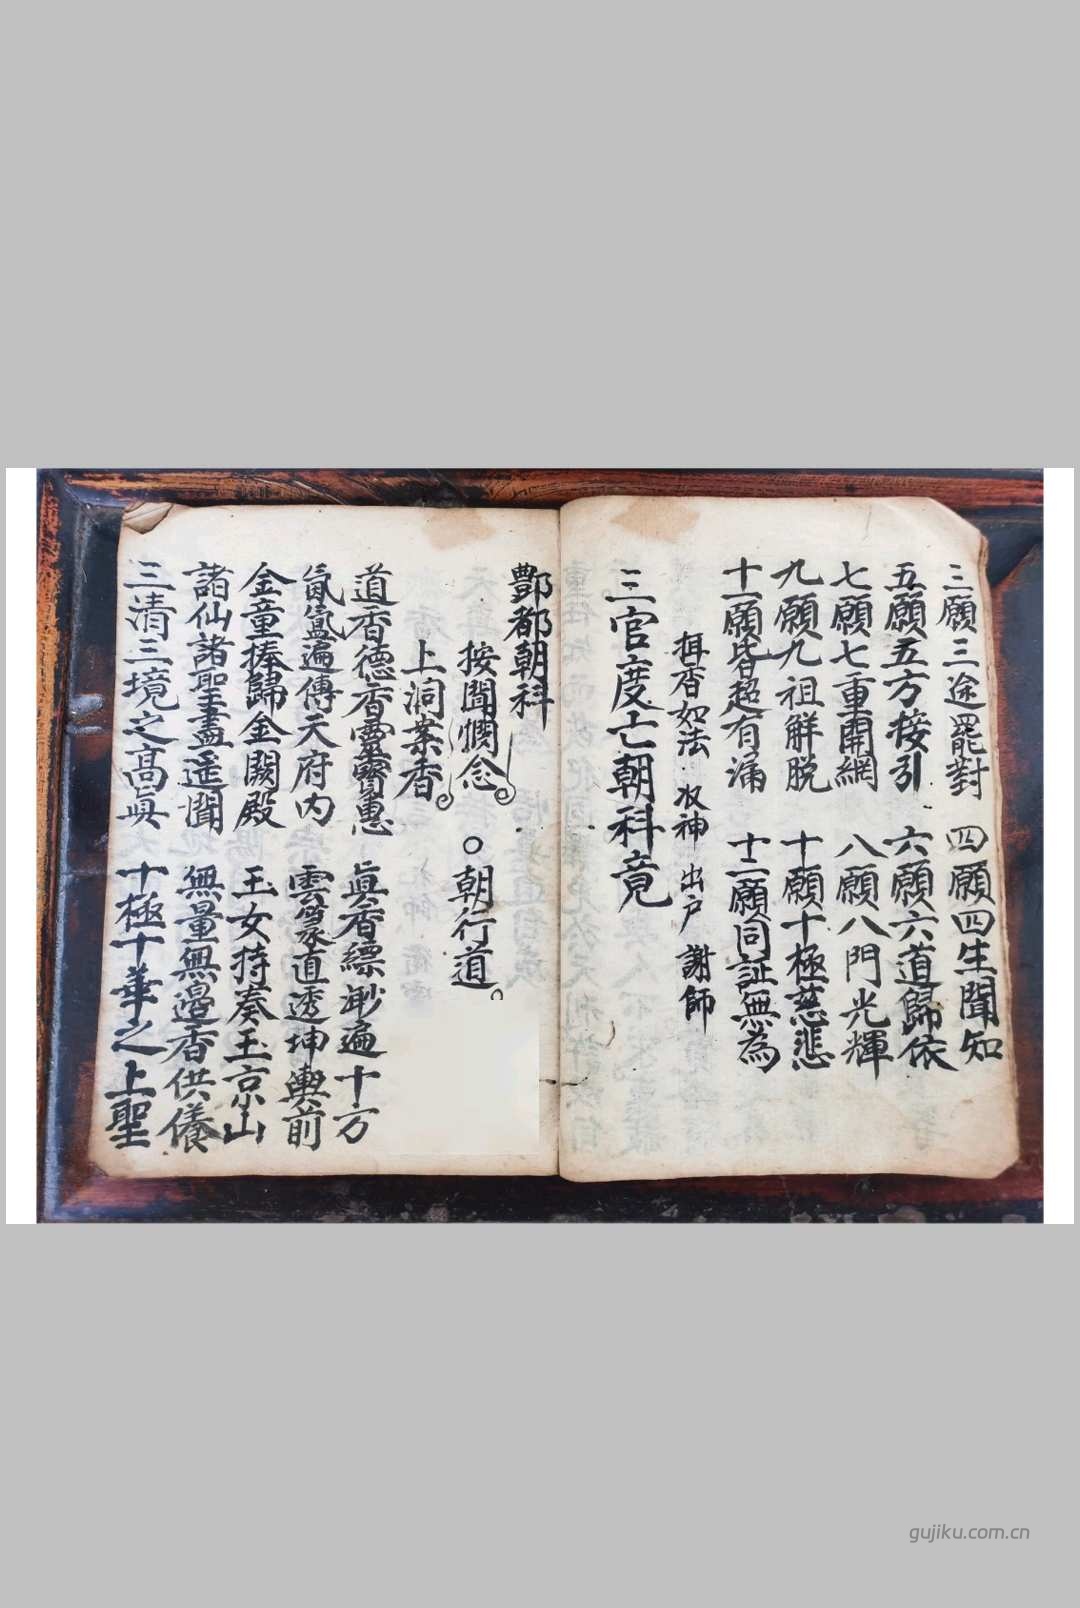 三願三途罷對 四願四生聞知
五願五方接引 六願六道歸依
七願七重開網 八願八門光輝
九願九祖解脫 十願十極慈悲
十一願皆超有漏 十二願同証無為
如法 神 出戶 謝師
三官度亡朝科竟
酆都朝科
按聞憫念 ○朝行道
上洞案香
道香德香靈寶惠 眞香縹渺遍十方
氤氳遍傳天府內 雲篆直透坤輿前
金童捧歸金闕殿 玉女持奏玉京山
諸仙諸聖盡遥聞 無量無邉香供養
三清三境之高眞 十極十華之上聖
gujiku.com.cn